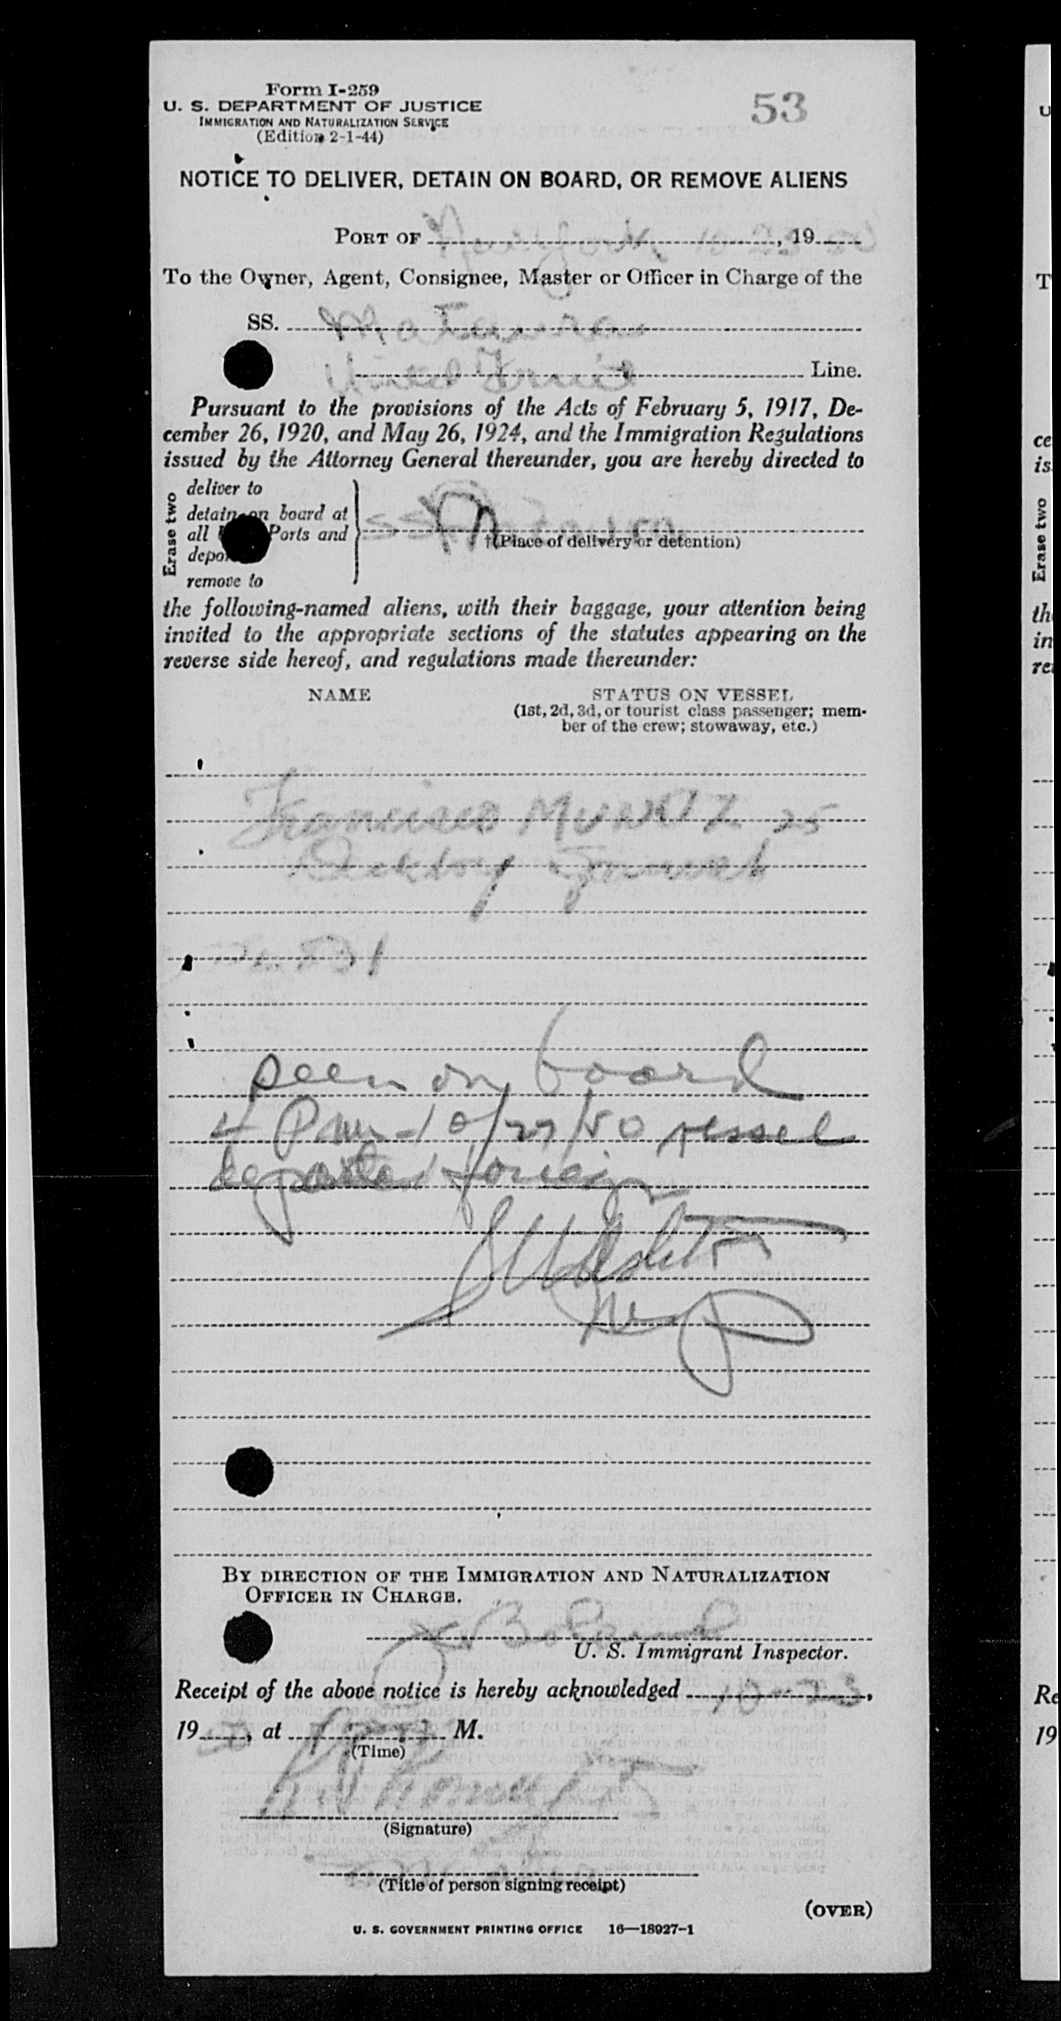 Form I-259
U. S. DEPARTMENT OF JUSTICE
IMMIGRATION AND NATURALIZATION SERVICE
(Edition 2-1-44)
53
NOTICE TO DELIVER, DETAIN ON BOARD, OR REMOVE ALIENS
PORT OF New York, 10 , 19
To the Owner, Agent, Consignee, Master or Officer in Charge of the
SS.
United Fruit Line.
Pursuant to the provisions of the Acts of February 5, 1917, De-
cember 26, 1920, and May 26, 1924, and the Immigration Regulations
issued by the Attorney General thereunder, you are hereby directed to
Erase two
deliver to
detain on board at
all Ports and
remove to
SS
(Place of delivery or detention)
the following-named aliens, with their baggage, your attention being
invited to the appropriate sections of the statutes appearing on the
reverse side hereof, and regulations made thereunder:
NAME STATUS ON VESSEL
(1st, 2d, 3d, or tourist class passenger; mem-
ber of the crew; stowaway, etc.)
Francisco 25
seen on board
4 Pm - 10/27/50 vessel
departed foreign
Insp
BY DIRECTION OF THE IMMIGRATION AND NATURALIZATION
OFFICER IN CHARGE.
U. S. Immigrant Inspector.
Receipt of the above notice is hereby acknowledged 10-23,
19 50, at M.
(Time)
(Signature)
(Title of person signing receipt)
(OVER)
U. S. GOVERNMENT PRINTING OFFICE 16—18927-1